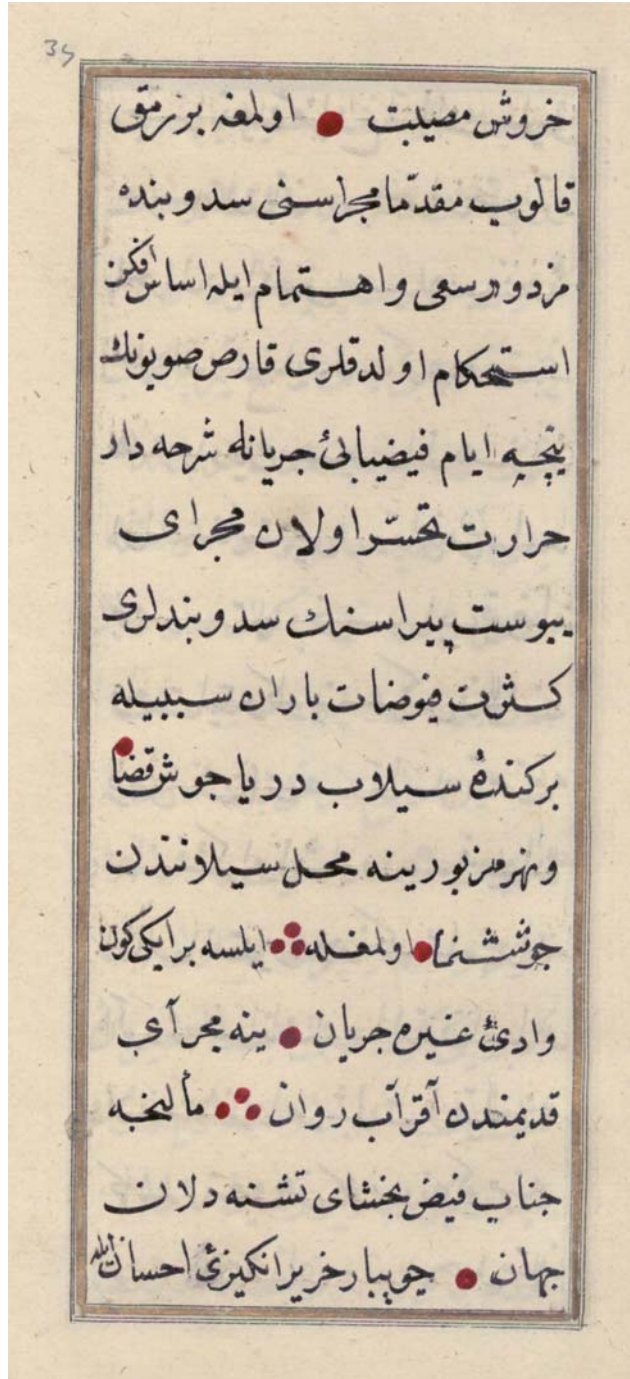 34
خروش مصیبت ● اولمغه بر رمق
قالوب مقدّما مجراسنی سد و بنده
مزدور سعی و اهتمام ایله اساس افکن
استحکام اولدقلری قارص صوینك
نیچه ایام فیضیابئ جریانله شرحه دار
حرارت تحسّر اولان مجرای
یبوست پیراسنك سد و بندلری
کثرت فیوضات باران سببیله
برکندۀ سیلاب دریا جوش قضا ●
و نهر مزبور ینه محل سیلانندن
جوششنما ● اولمغله ∴ ایلسه بر ایکی کون
وادئ غیره جریان ● ینه مجرآی
قدیمندن آقر آب روان ∴ مآلنجه
جناب فیض بخشای تشنه دلان
جهان ● جویبار خریر انکیزئ احسان ایله